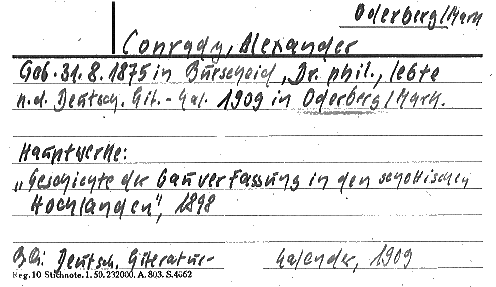 Oderberg/Mark
Conrady, Alexander
Geb. 31.8.1875 in Burscheid, Dr. phil., lebte
n.d. Deutsch. Lit.-Kal. 1909 in Oderberg/Mark.
Hauptwerke:
„Geschichte der Gauverfassung in den schottischen
Hochlanden", 1898
Deutsch. Literatur-Kalender, 1909
Reg. 10 Stichnote. 1. 50. 232000. A. 803. S. 4662